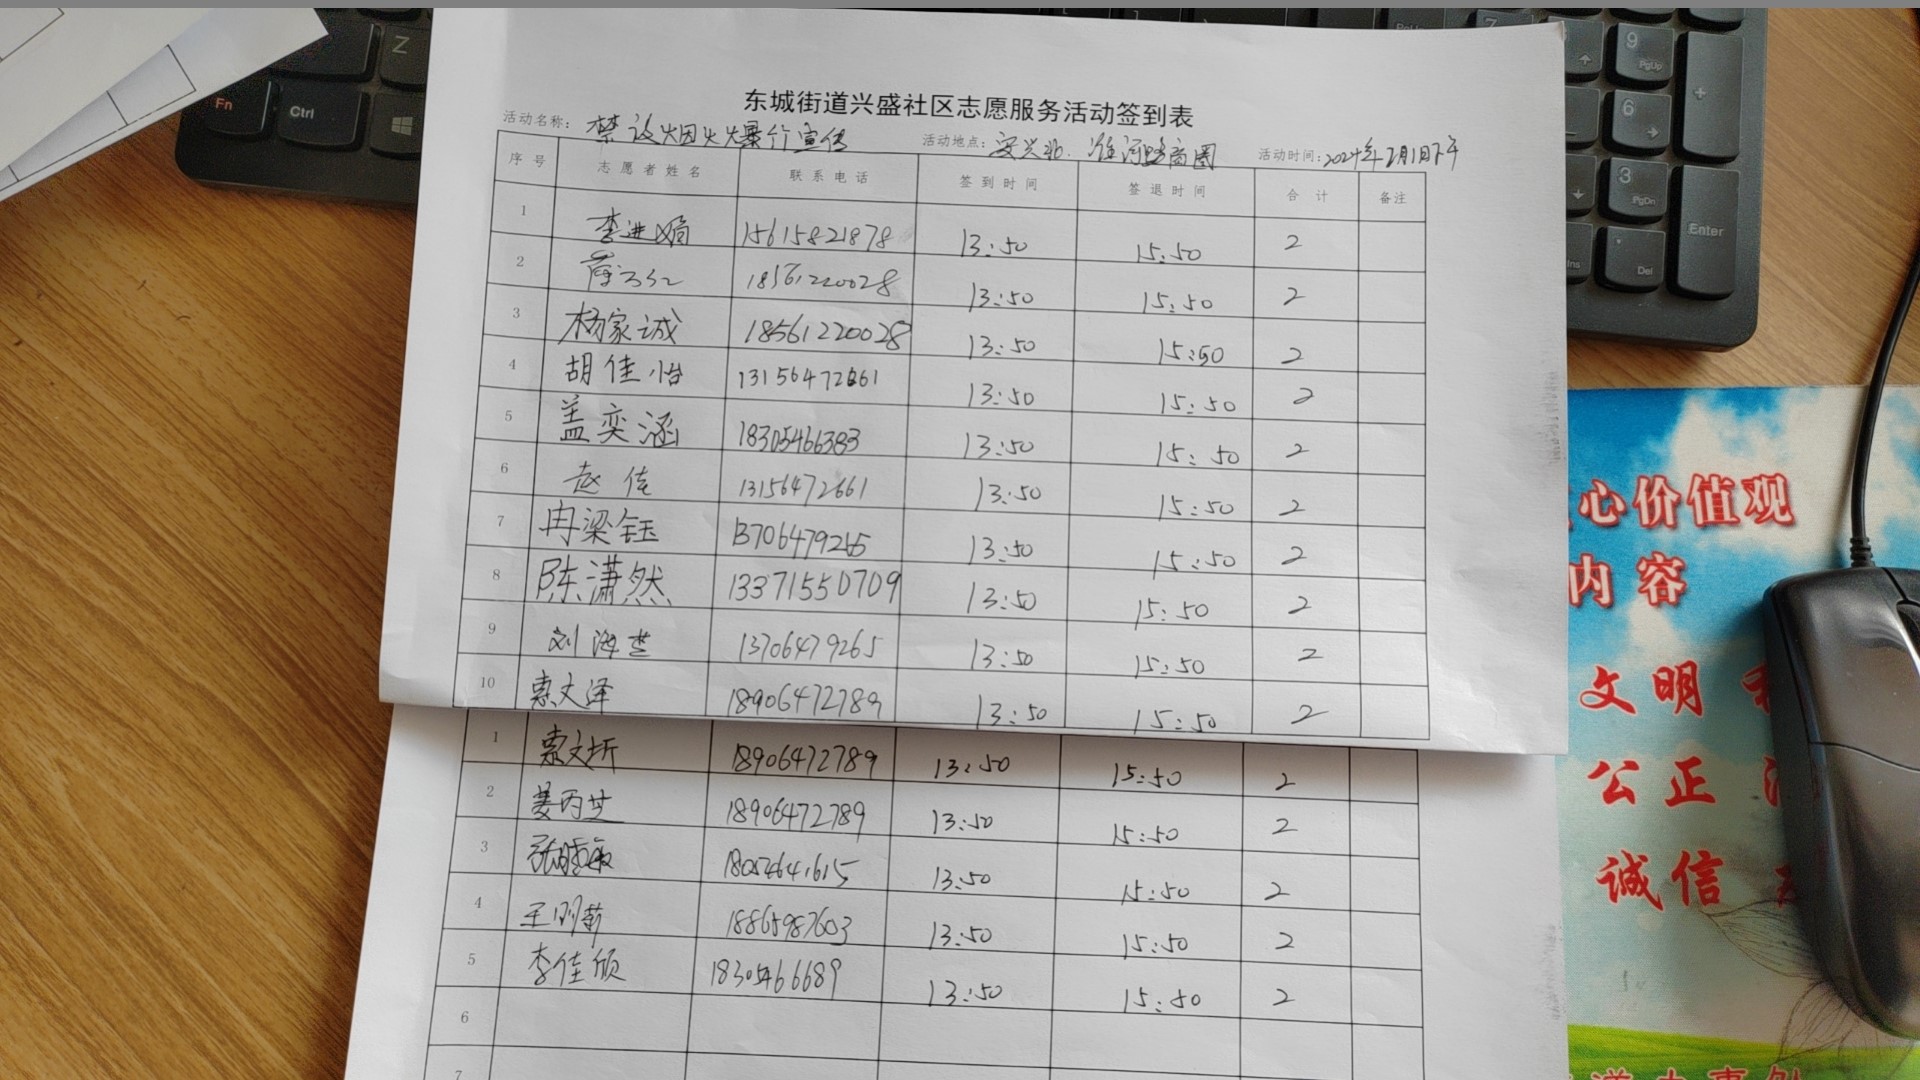 东城街道兴盛社区志愿服务活动签到表
活动名称: 禁放烟火爆竹宣传 活动地点: 安兴北、淮河路商圈 活动时间: 2024年2月1日下午
序号 志愿者姓名 联系电话 签到时间 签退时间 合计 备注
1 李进娟 15615821878 13:50 15:50 2
2 18561220028 13:50 15:50 2
3 杨家诚 18561220028 13:50 15:50 2
4 胡佳怡 13156472661 13:50 15:50 2
5 盖奕涵 18305466383 13:50 15:50 2
6 赵佳 13156472661 13:50 15:50 2
7 冉梁钰 13706479265 13:50 15:50 2
8 陈潇然 13371550709 13:50 15:50 2
9 刘海芝 13706479265 13:50 15:50 2
10 索文泽 18906472789 13:50 15:50 2
1 索文圻 18906472789 13:50 15:50 2
2 姜丙芝 18906472789 13:50 15:50 2
3 13:50 15:50 2
4 13:50 15:50 2
5 李佳颀 18305466689 13:50 15:50 2
6
7
心价值观
内容
文明
公正
诚信
Fn Ctrl Z
9 PgUp
6
3 PgDn
Ins Del Enter
+